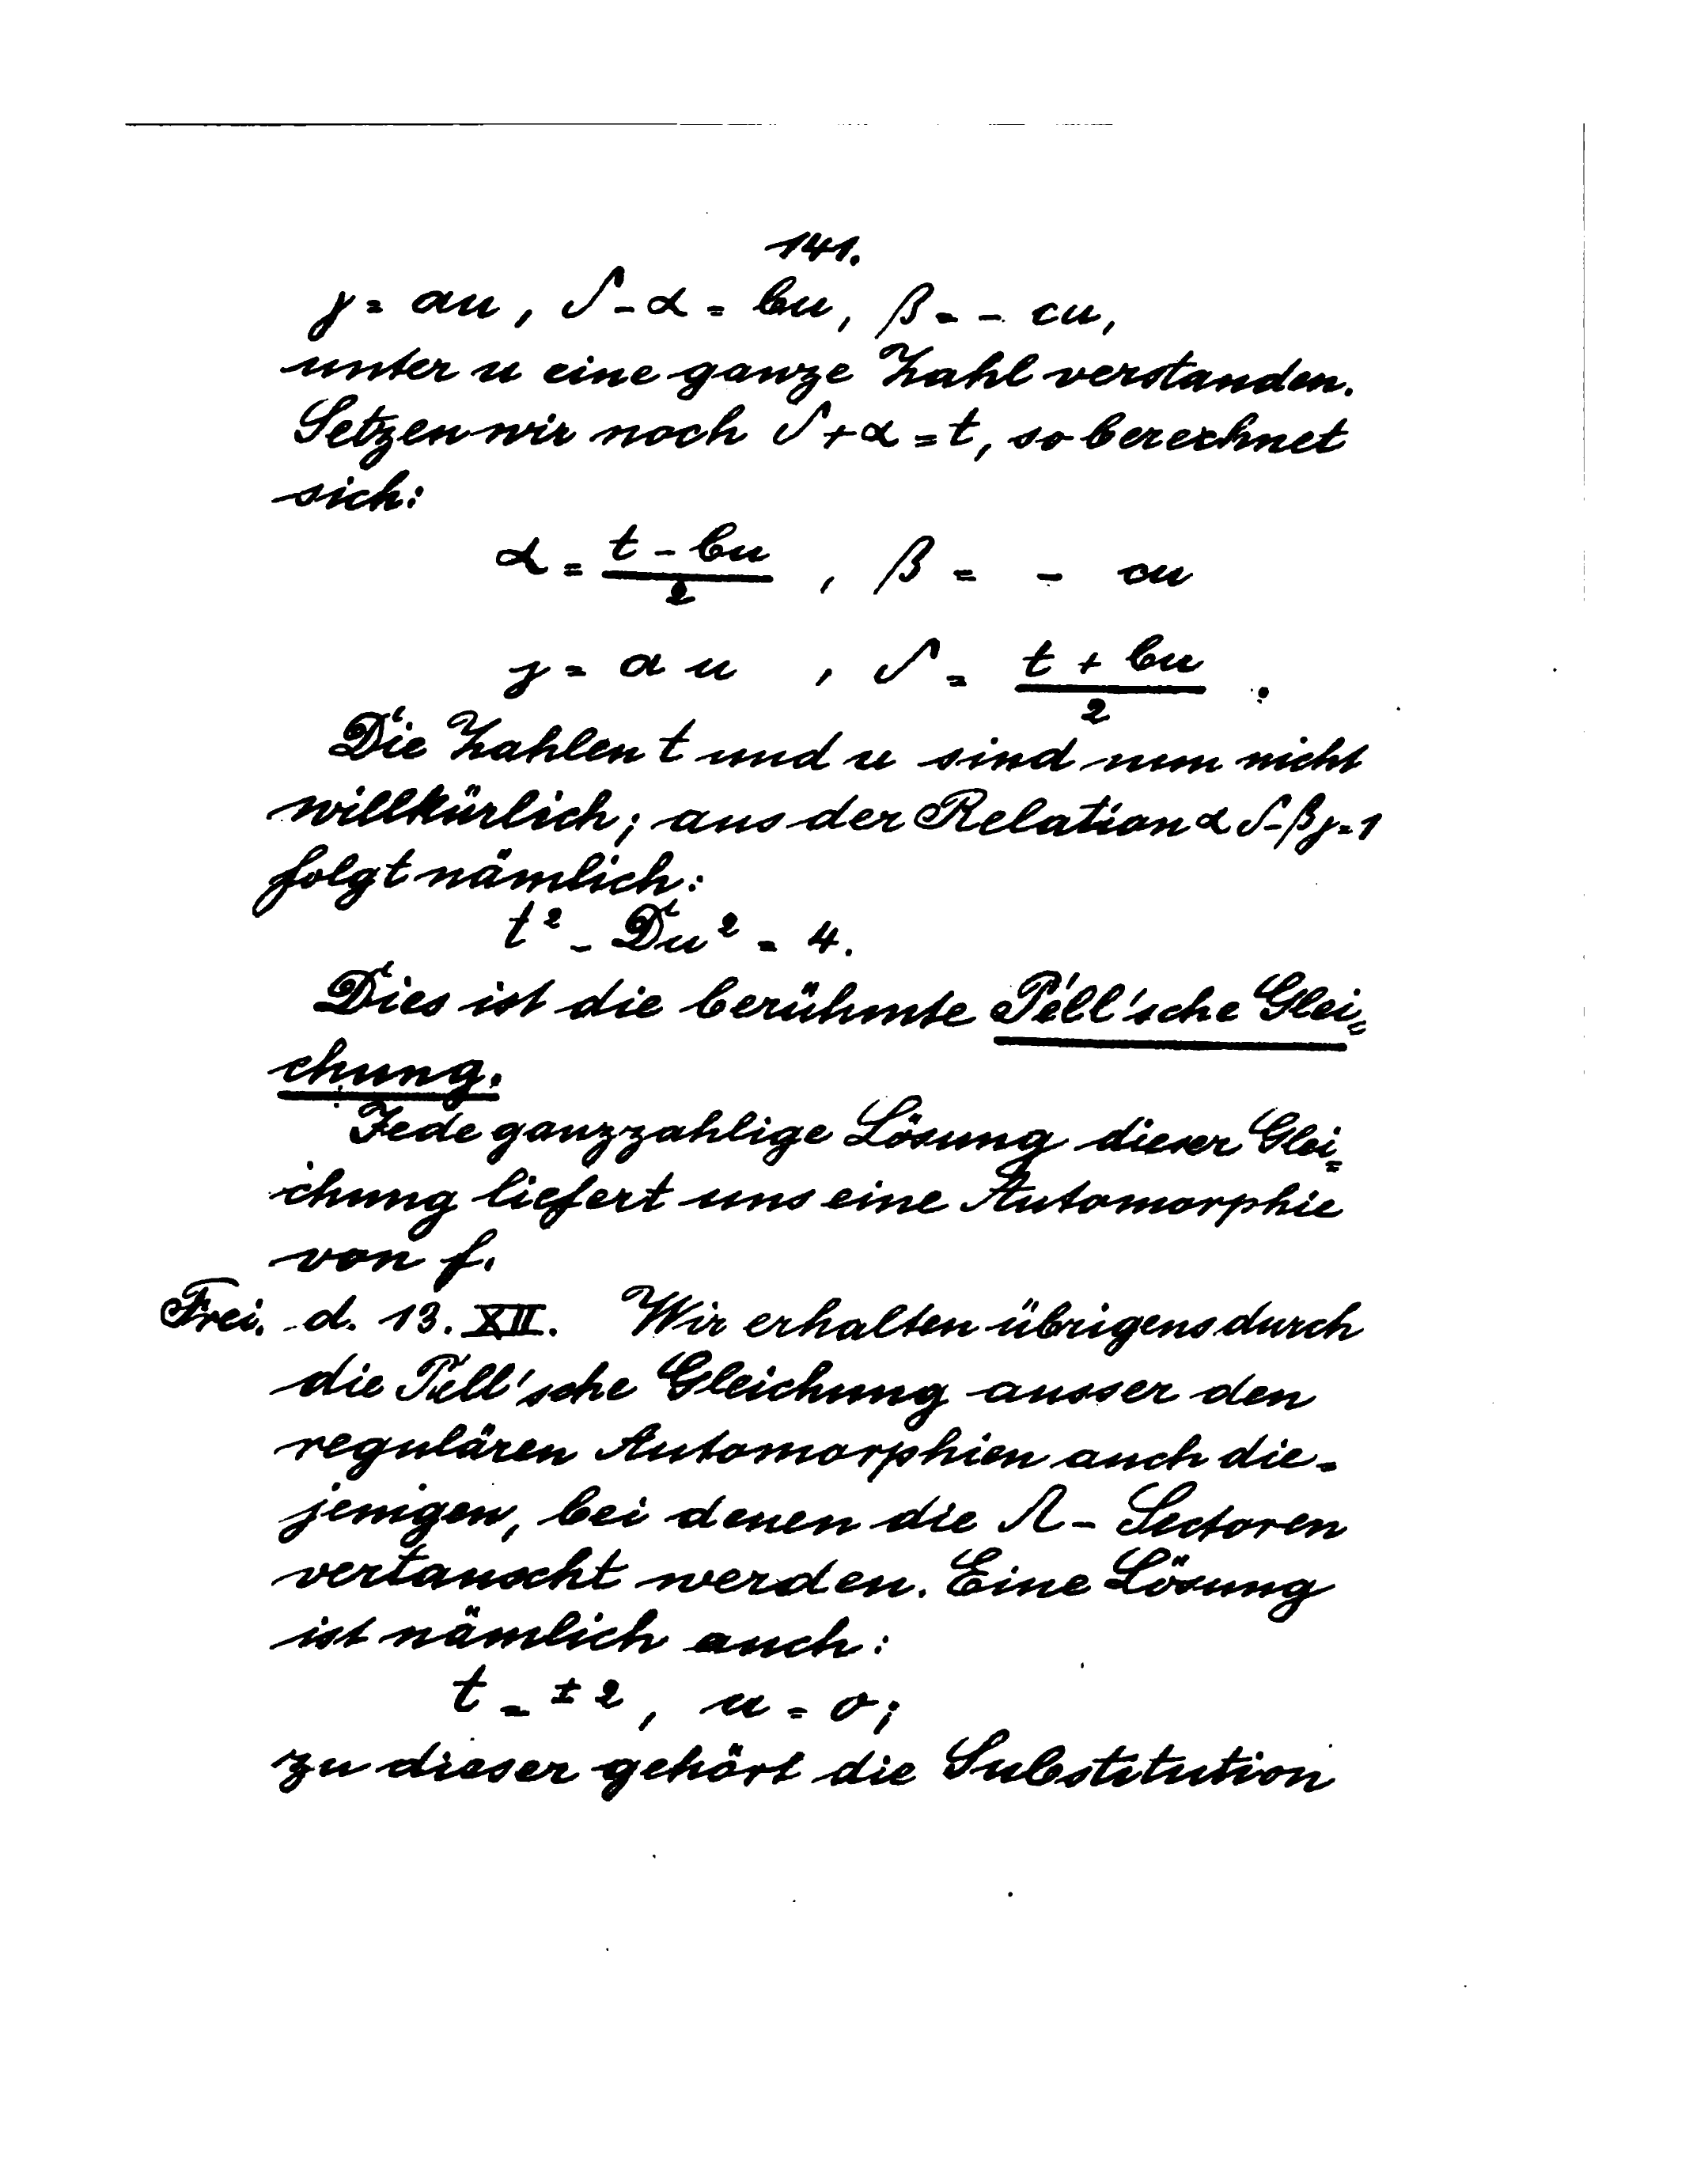 141.
γ = au, δ - α = bu, β = - cu,
unter u eine ganze Zahl verstanden.
Setzen wir noch δ + α = t, so berechnet
sich:
α = (t - bu)/2 , β = - cu
γ = au , δ = (t + bu)/2 .
Die Zahlen t und u sind nun nicht
willkürlich; aus der Relation αδ-βγ=1
folgt nämlich:
t² - Du² = 4.
Dies ist die berühmte Pell'sche Glei=
chung.
Jede ganzzahlige Lösung dieser Glei=
chung liefert uns eine Automorphie
von f.
Frei. d. 13. XII. Wir erhalten übrigens durch
die Pell'sche Gleichung ausser den
regulären Automorphien auch die-
jenigen, bei denen die Λ - Sectoren
vertauscht werden. Eine Lösung
ist nämlich auch:
t = ± 2, u = 0;
zu dieser gehört die Substitution